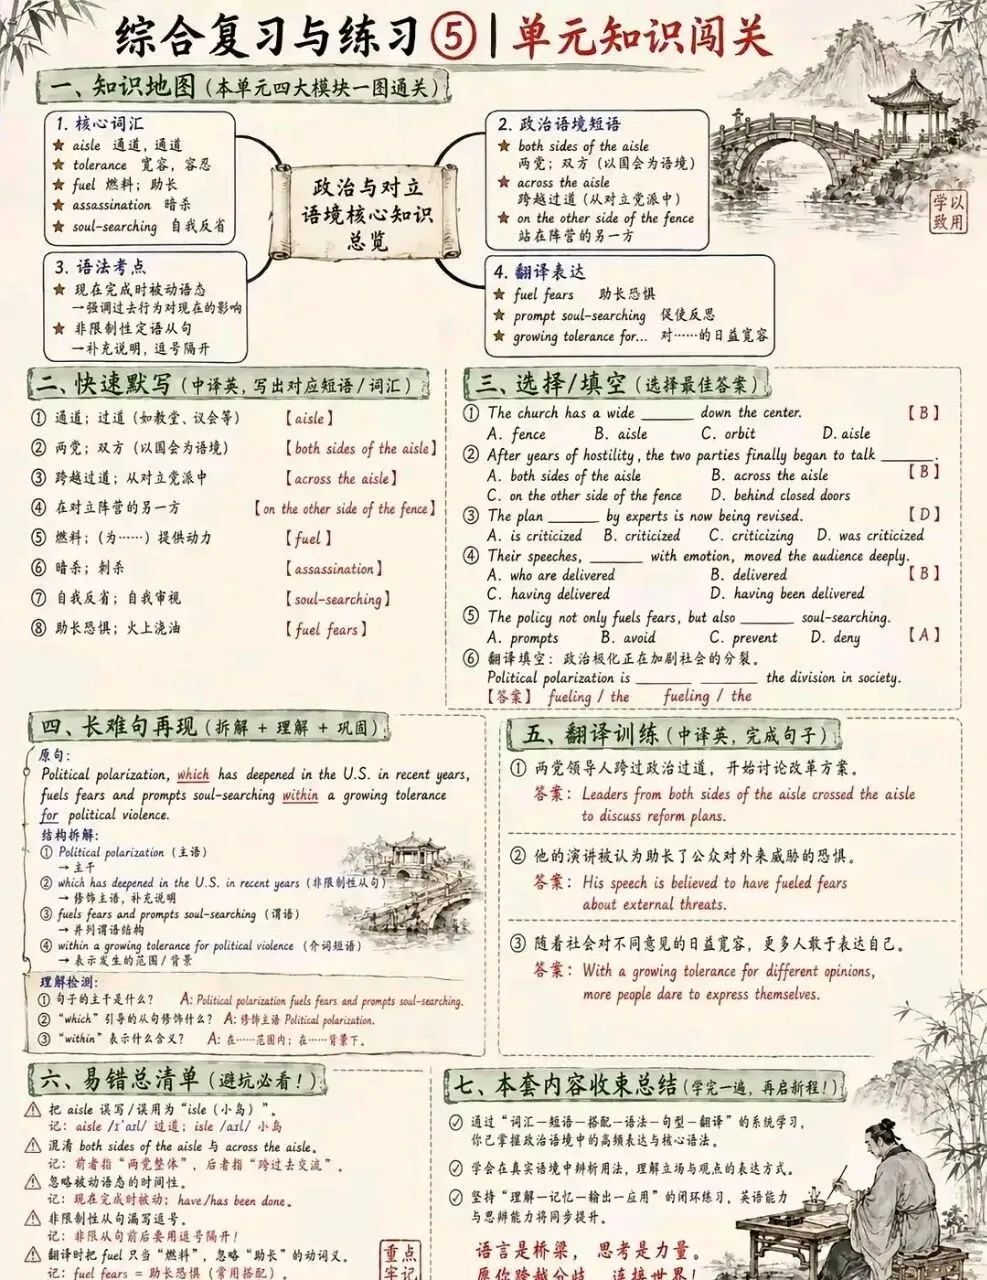 综合复习与练习⑤|单元知识闯关
一、知识地图(本单元四大模块一图通关)
1. 核心词汇
★ aisle 通道,通道
★ tolerance 宽容,容忍
★ fuel 燃料;助长
★ assassination 暗杀
★ soul-searching 自我反省
政治与对立
语境核心知识
总览
2. 政治语境短语
★ both sides of the aisle
两党;双方(以国会为语境)
★ across the aisle
跨越过道(从对立党派中)
★ on the other side of the fence
站在阵营的另一方
学以
致用
3. 语法考点
★ 现在完成时被动语态
→强调过去行为对现在的影响
★ 非限制性定语从句
→补充说明,逗号隔开
4. 翻译表达
★ fuel fears 助长恐惧
★ prompt soul-searching 促使反思
★ growing tolerance for... 对……的日益宽容
二、快速默写(中译英,写出对应短语/词汇)
① 通道;过道(如教堂、议会等) 【aisle】
② 两党;双方(以国会为语境) 【both sides of the aisle】
③ 跨越过道;从对立党派中 【across the aisle】
④ 在对立阵营的另一方 【on the other side of the fence】
⑤ 燃料;(为……)提供动力 【fuel】
⑥ 暗杀;刺杀 【assassination】
⑦ 自我反省;自我审视 【soul-searching】
⑧ 助长恐惧;火上浇油 【fuel fears】
三、选择/填空(选择最佳答案)
① The church has a wide ______ down the center. 【B】
A. fence B. aisle C. orbit D. aisle
② After years of hostility, the two parties finally began to talk ______.
A. both sides of the aisle B. across the aisle 【B】
C. on the other side of the fence D. behind closed doors
③ The plan ______ by experts is now being revised. 【D】
A. is criticized B. criticized C. criticizing D. was criticized
④ Their speeches, ______ with emotion, moved the audience deeply.
A. who are delivered B. delivered 【B】
C. having delivered D. having been delivered
⑤ The policy not only fuels fears, but also ______ soul-searching.
A. prompts B. avoid C. prevent D. deny 【A】
⑥ 翻译填空:政治极化正在加剧社会的分裂。
Political polarization is ______ ______ the division in society.
【答案】 fueling / the fueling / the
四、长难句再现(拆解 + 理解 + 巩固)
原句:
Political polarization, which has deepened in the U.S. in recent years,
fuels fears and prompts soul-searching within a growing tolerance
for political violence.
结构拆解:
① Political polarization(主语)
→ 主干
② which has deepened in the U.S. in recent years(非限制性从句)
→ 修饰主语,补充说明
③ fuels fears and prompts soul-searching(谓语)
→ 并列谓语结构
④ within a growing tolerance for political violence(介词短语)
→ 表示发生的范围/背景
理解检测:
① 句子的主干是什么? A: Political polarization fuels fears and prompts soul-searching.
② “which”引导的从句修饰什么? A: 修饰主语 Political polarization.
③ “within”表示什么含义? A: 在……范围内;在……背景下。
五、翻译训练(中译英,完成句子)
① 两党领导人跨过政治过道,开始讨论改革方案。
答案:Leaders from both sides of the aisle crossed the aisle
to discuss reform plans.
② 他的演讲被认为助长了公众对外来威胁的恐惧。
答案:His speech is believed to have fueled fears
about external threats.
③ 随着社会对不同意见的日益宽容,更多人敢于表达自己。
答案:With a growing tolerance for different opinions,
more people dare to express themselves.
六、易错总清单(避坑必看!)
⚠ 把 aisle 误写/误用为“isle(小岛)”。
记:aisle /ɪˈaɪl/ 过道;isle /aɪl/ 小岛
⚠ 混淆 both sides of the aisle 与 across the aisle。
记:前者指“两党整体”,后者指“跨过去交流”。
⚠ 忽略被动语态的时间性。
记:现在完成时被动:have/has been done。
⚠ 非限制性从句漏写逗号。
记:非限从句前后要用逗号隔开!
⚠ 翻译时把 fuel 只当“燃料”,忽略“助长”的动词义。
记:fuel fears = 助长恐惧(常用搭配)。
重点
牢记
七、本套内容收束总结(学完一遍,再启新程!)
通过“词汇—短语—搭配—语法—句型—翻译”的系统学习,
你已掌握政治语境中的高频表达与核心语法。
学会在真实语境中辨析用法,理解立场与观点的表达方式。
坚持“理解—记忆—输出—应用”的闭环练习,英语能力
与思辨能力将同步提升。
语言是桥梁,思考是力量。
愿你跨越分歧,连接世界!